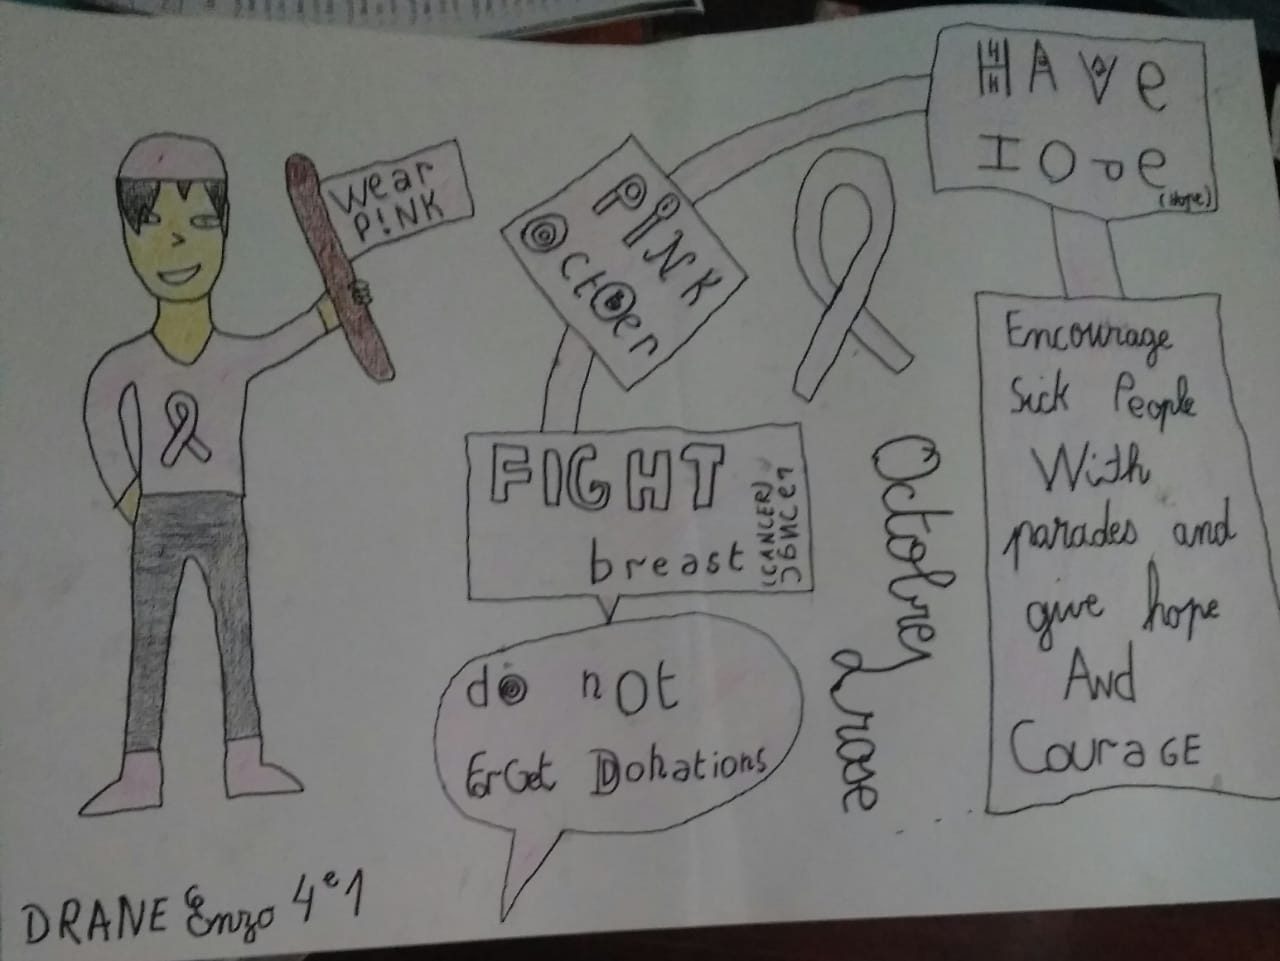 Wear
P!NK
PiNK
OctOBer
HAVe
IOpe
(Hope)
FIGHT
breast
(CANCER)
Encourage
Sick People
With
parades and
give hope
And
CouraGE
do not
ErGet Donations
Octobre
rose
DRANE Enzo 4e1